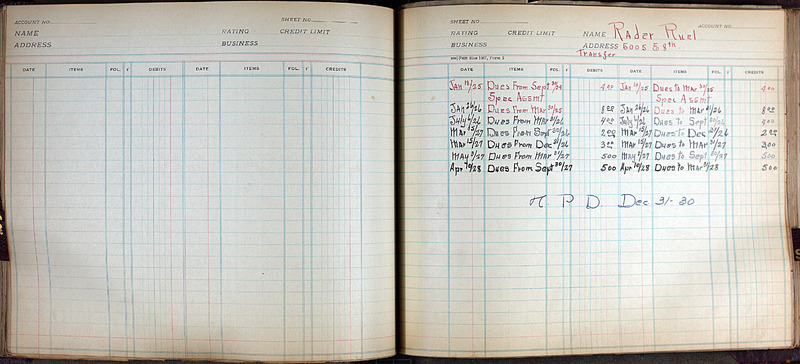 ACCOUNT NO. SHEET NO.
NAME RATING CREDIT LIMIT
ADDRESS BUSINESS
DATE ITEMS FOL. DEBITS DATE ITEMS FOL. CREDITS
SHEET NO. ACCOUNT NO.
RATING CREDIT LIMIT NAME Rader Ruel
BUSINESS ADDRESS 6005 S 8th
Transfer
DATE ITEMS FOL. DEBITS DATE ITEMS FOL. CREDITS
Jan /25 Dues From Sept 30/24 4 00 Jan /25 Dues to Mar /25 4 00
Spec Assmt Spec Assmt
Jan 26/26 Dues From Mar 31/25 8 00 Jan 26/26 Dues to Mar /26 8 00
July 6/26 Dues From Mar /26 4 00 July 6/26 Dues to Sept /26 4 00
Mar 15/27 Dues From Sept 30/26 2 00 Mar 15/27 Dues to Dec /26 2 00
Mar 15/27 Dues From Dec 31/26 3 00 Mar 15/27 Dues to Mar 31/27 3 00
May /27 Dues From Mar 31/27 5 00 May /27 Dues to Sept /27 5 00
Apr 10/28 Dues From Sept 30/27 5 00 Apr 10/28 Dues to Mar 31/28 5 00
P D. Dec 31-30